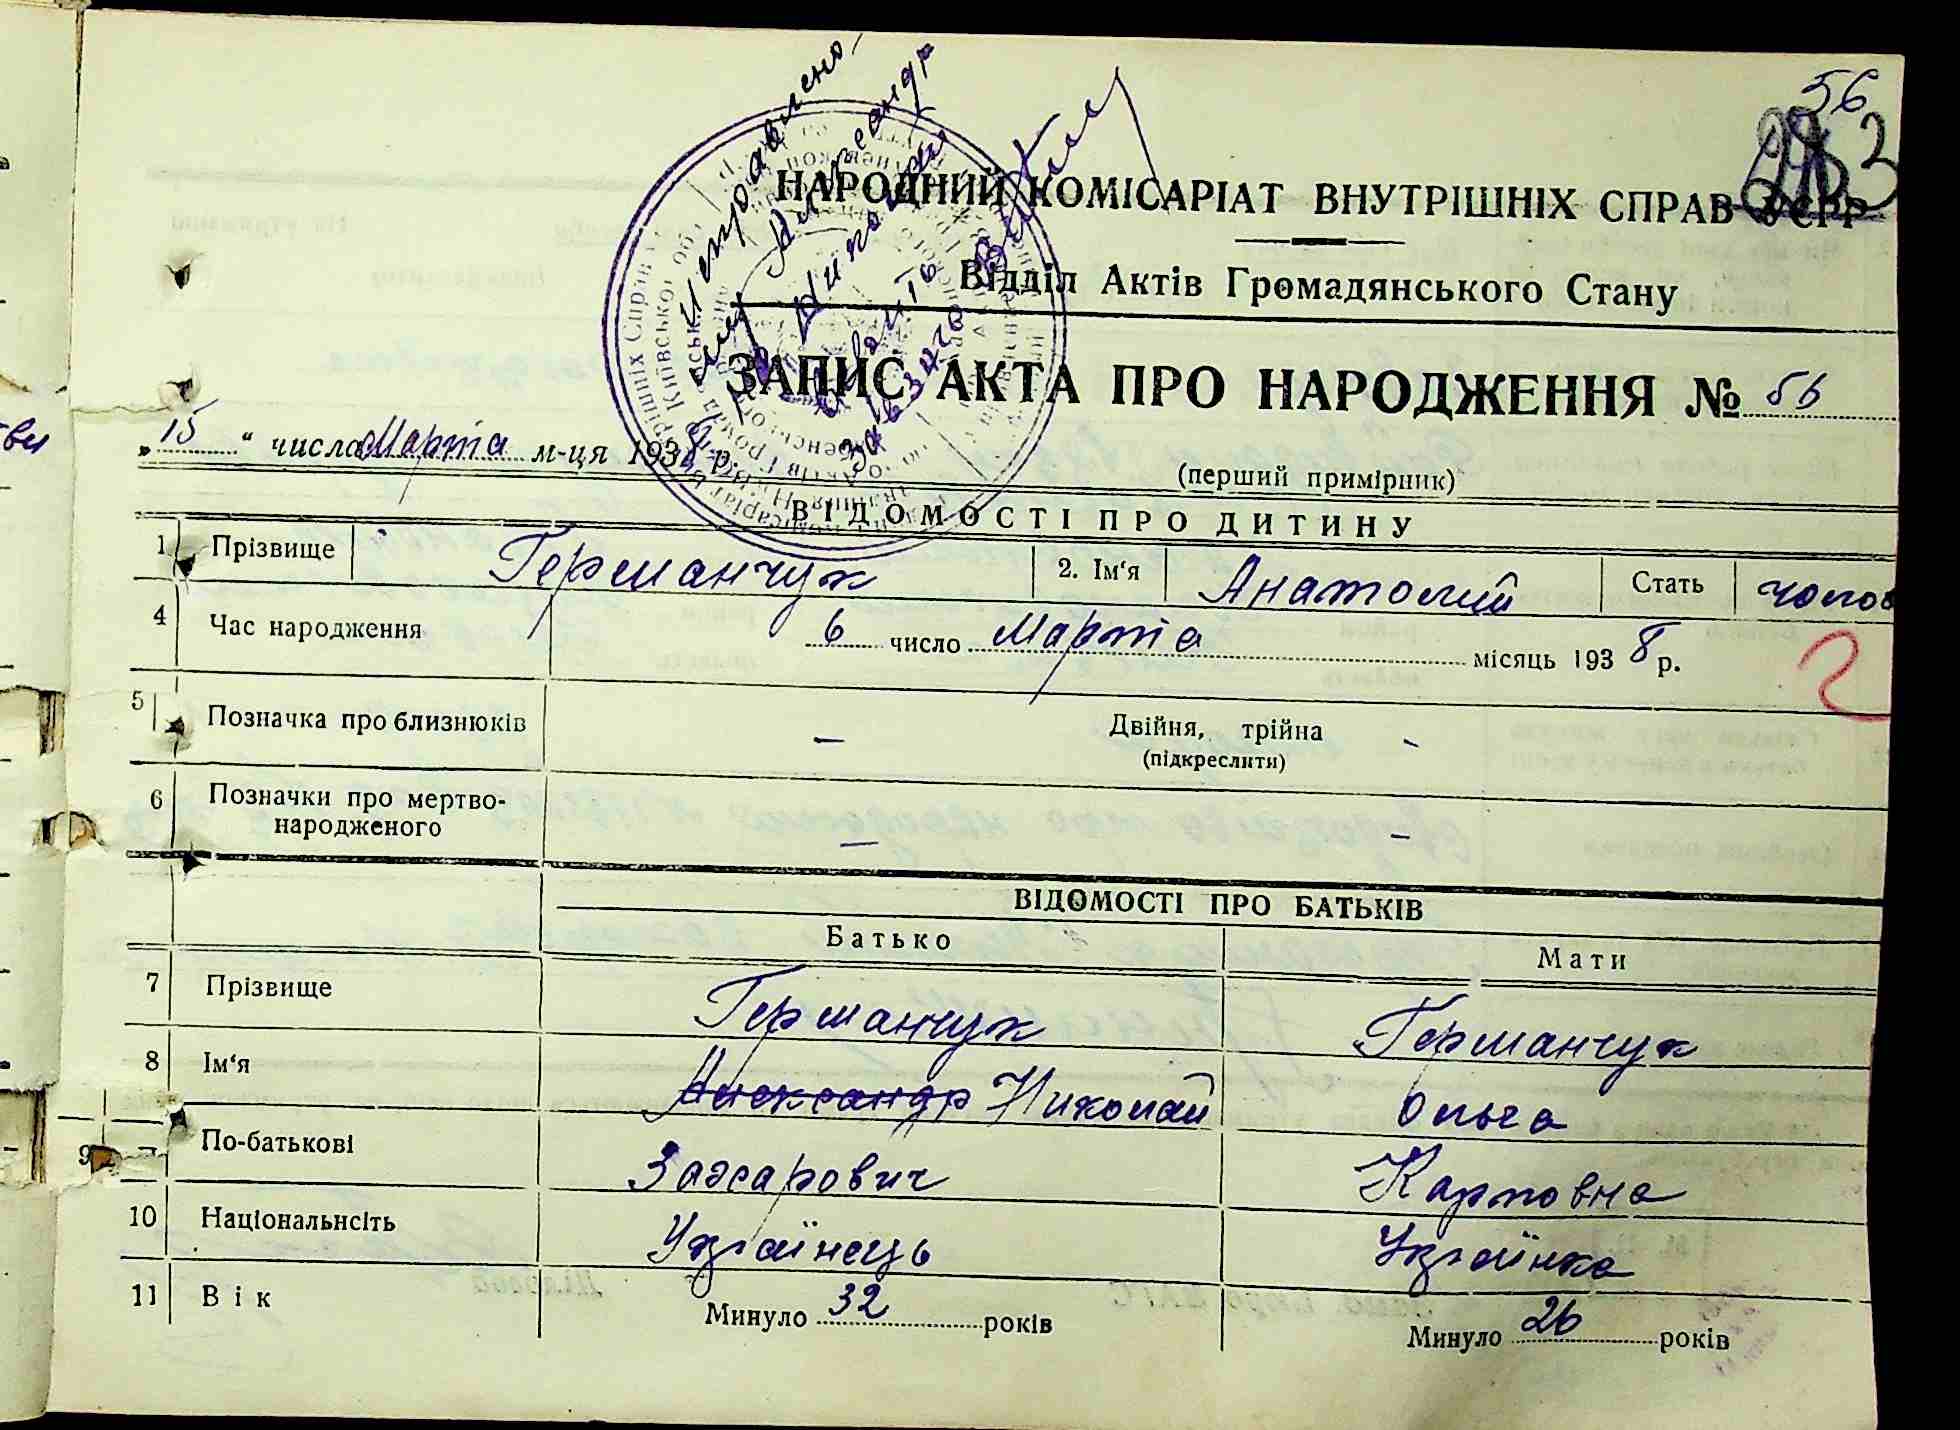 56
Исправлено,
имя Александр
на Николай
НАРОДНИЙ КОМІСАРІАТ ВНУТРІШНІХ СПРАВ УСРР
Відділ Актів Громадянського Стану
ЗАПИС АКТА ПРО НАРОДЖЕННЯ № 56
„ 15 “ числа Марта м-ця 1938 р.
(перший примірник)
ВІДОМОСТІ ПРО ДИТИНУ
1 Прізвище Германчук 2. Ім'я Анатолий Стать чолов
4 Час народження 6 число Марта місяць 1938 р.
5 Позначка про близнюків — Двійня, трійна -
(підкреслити)
6 Позначки про мертво-
народженого — —
ВІДОМОСТІ ПРО БАТЬКІВ
Батько Мати
7 Прізвище Германчук Германчук
8 Ім'я Александр Николай Ольга
9 По-батькові Захарович Карповна
10 Національнсіть Українець Українка
11 Вік Минуло 32 років Минуло 26 років